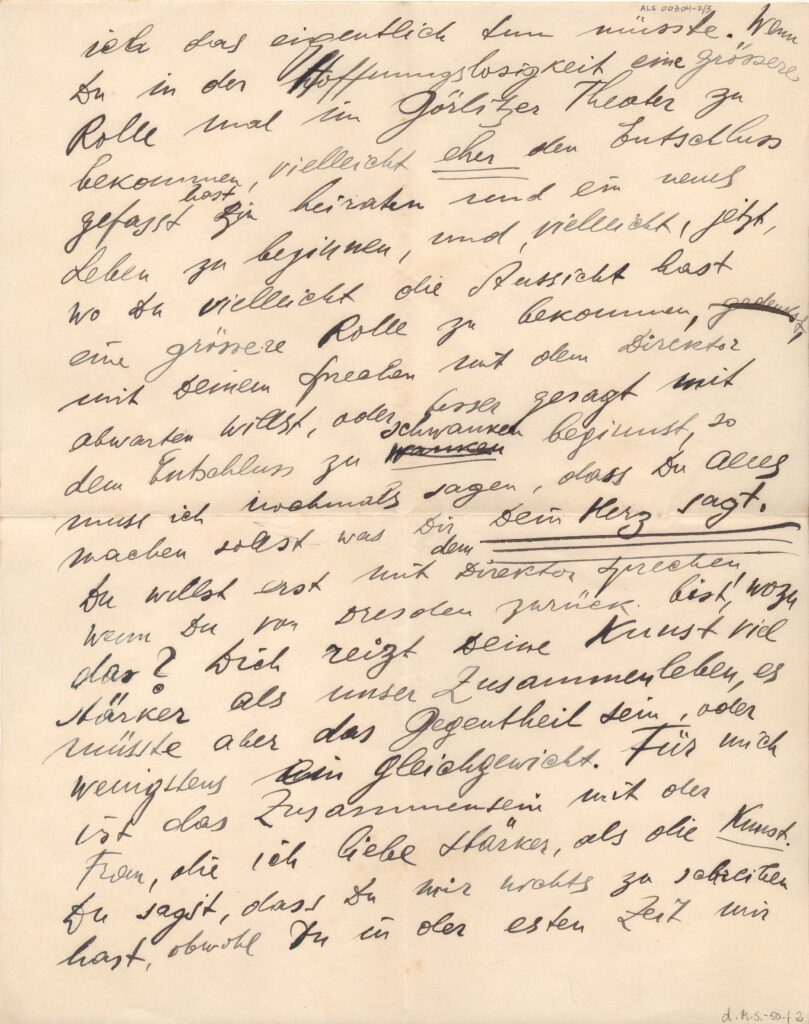 ALS 00304-2/3
ich das eigentlich tun müsste. Wenn
Du in der Hoffnungslosigkeit eine grössere
Rolle mal im Görlitzer Theater zu
bekommen, vielleicht eher den Entschluss
gefasst hast zu heiraten und ein neues
Leben zu beginnen, und, vielleicht, jetzt,
wo Du vielleicht die Aussicht hast
eine grössere Rolle zu bekommen,
mit Deinem Sprechen mit dem Direktor
abwarten willst, oder besser gesagt mit
dem Entschluss zu schwanken wanken beginnst, so
muss ich nochmals sagen, dass Du alles
machen sollst was Dir Dein Herz sagt!
Du willst erst mit dem Direktor sprechen
wenn Du von Dresden zurück bist, wozu
das? Dich reizt Deine Kunst viel
stärker als unser Zusammenleben, es
müsste aber das Gegentheil sein, oder
wenigstens ein Gleichgewicht. Für mich
ist das Zusammensein mit der
Frau, die ich liebe stärker, als die Kunst.
Du sagst, dass Du mir nichts zu schreiben
hast, obwohl Du in der esten Zeit mir
d.M.S.-50-f2